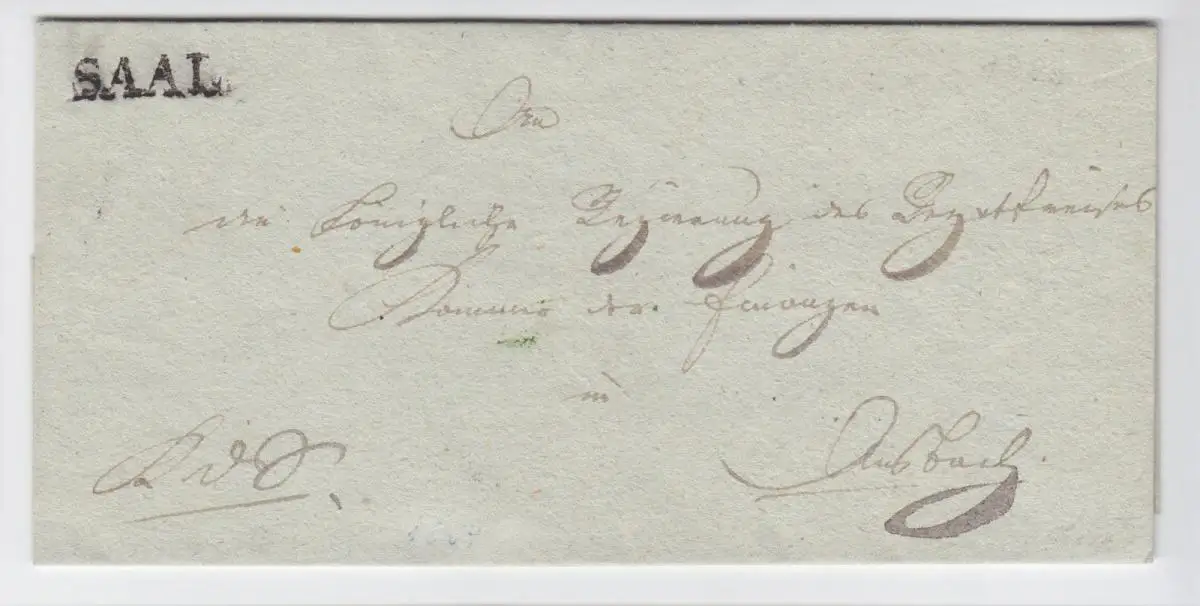 SAAL
An
die Königliche Regierung des Rezatkreises
Kammer der Finanzen
in
R d S
Ansbach.